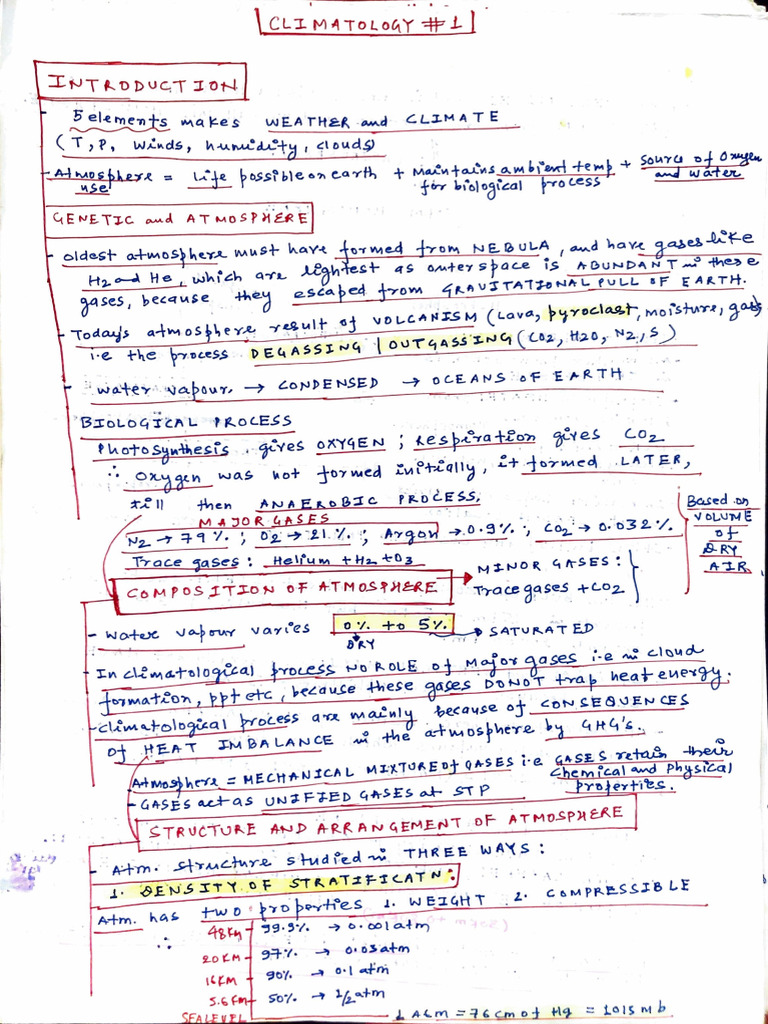 CLIMATOLOGY #1
INTRODUCTION
- 5 elements makes WEATHER and CLIMATE
(T, P, winds, humidity, clouds)
- Atmosphere = Life possible on earth + Maintains ambient temp + source of Oxygen
use for biological process and water
GENETIC and ATMOSPHERE
- oldest atmosphere must have formed from NEBULA, and have gases like
H2 and He, which are lightest as outerspace is ABUNDANT in these
gases, because they escaped from GRAVITATIONAL PULL OF EARTH.
- Todays atmosphere result of VOLCANISM (Lava, pyroclast, moisture, gas
i.e the process DEGASSING / OUTGASSING (CO2, H2O, N2, S)
- water vapour → CONDENSED → OCEANS OF EARTH
BIOLOGICAL PROCESS
Photosynthesis gives OXYGEN ; Respiration gives CO2
∴ Oxygen was not formed initially, it formed LATER,
till then ANAEROBIC PROCESS.
MAJOR GASES
N2 → 79% ; O2 → 21% ; Argon → 0.9% ; CO2 → 0.032%
Trace gases : Helium + H2 + O3
Based on
VOLUME
OF
DRY
AIR
COMPOSITION OF ATMOSPHERE → MINOR GASES :
Trace gases + CO2
- water vapour varies 0% to 5% → SATURATED
DRY
- In climatological process NO ROLE of Major gases i.e in cloud
formation, ppt etc, because these gases DONOT trap heat energy.
- climatological process are mainly because of CONSEQUENCES
of HEAT IMBALANCE in the atmosphere by GHG's.
- Atmosphere = MECHANICAL MIXTURE of GASES i.e GASES retain their
Chemical and Physical
properties.
- GASES act as UNIFIED GASES at STP
STRUCTURE AND ARRANGEMENT OF ATMOSPHERE
- Atm. structure studied in THREE WAYS :
1. DENSITY OF STRATIFICATN :
Atm. has two properties 1. WEIGHT 2. COMPRESSIBLE
∴ 48Km 99.9% → 0.001 atm
20KM 97% → 0.03 atm
16KM 90% → 0.1 atm
5.6Km 50% → 1/2 atm
SEALEVEL 1 Atm = 76 cm of Hg = 1015 mb